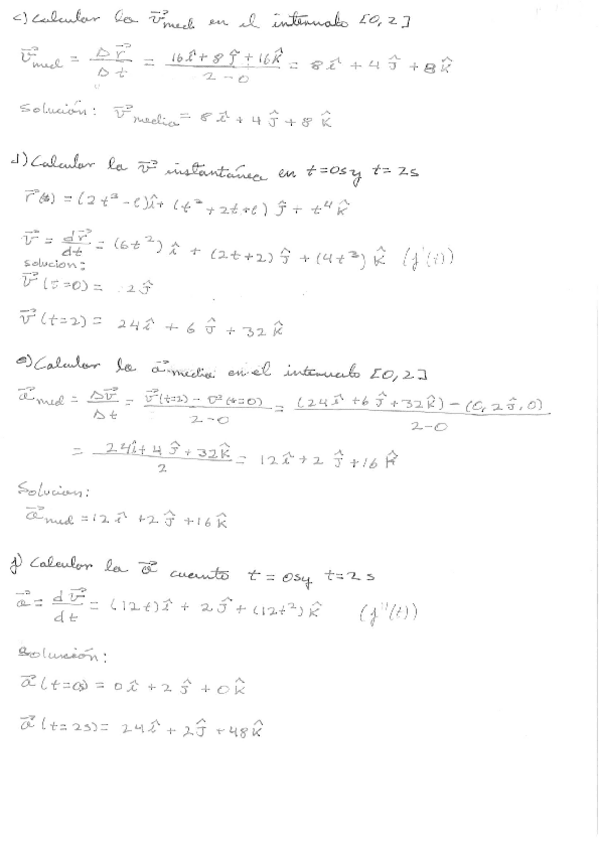 c) Calcular la v⃗med en el intervalo [0, 2]
v⃗med = Δr⃗/Δt = (16î + 8ĵ + 16k̂)/(2-0) = 8î + 4ĵ + 8k̂
Solución: v⃗media = 8î + 4ĵ + 8k̂
d) Calcular la v⃗ instantánea en t=0s y t=2s
r⃗(t) = (2t³-1)î + (t²+2t+1)ĵ + t⁴k̂
v⃗ = dr⃗/dt = (6t²)î + (2t+2)ĵ + (4t³)k̂ (f'(t))
solucion:
v⃗(t=0) = 2ĵ
v⃗(t=2) = 24î + 6ĵ + 32k̂
e) Calcular la a⃗media en el intervalo [0,2]
a⃗med = Δv⃗/Δt = (v⃗(t=2) - v⃗(t=0))/(2-0) = ((24î + 6ĵ + 32k̂) - (0, 2ĵ, 0))/(2-0)
= (24î + 4ĵ + 32k̂)/2 = 12î + 2ĵ + 16k̂
Solucion:
a⃗med = 12î + 2ĵ + 16k̂
f) Calcular la a⃗ cuanto t = 0s y t = 2s
a⃗ = dv⃗/dt = (12t)î + 2ĵ + (12t²)k̂ (f''(t))
Solución:
a⃗(t=0s) = 0î + 2ĵ + 0k̂
a⃗(t=2s) = 24î + 2ĵ + 48k̂